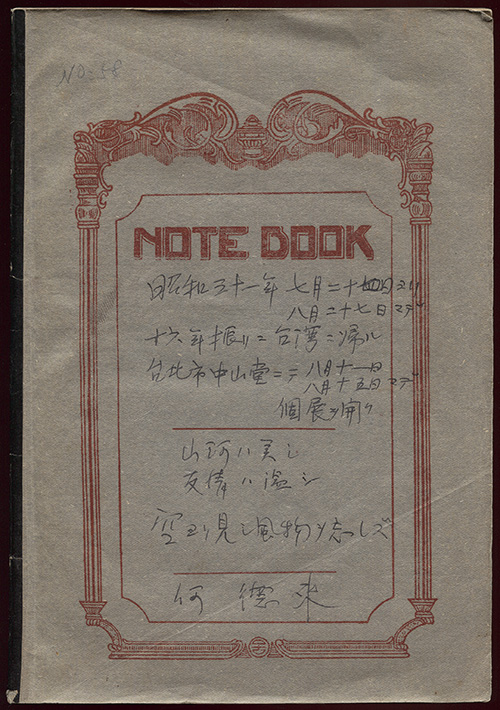 NO-58
NOTE BOOK
昭和五十一年 七月二十四日ヨリ
八月二十七日マデ
十六年振リニ台湾ニ帰ル
台北市中山堂ニテ 八月十一日
八月十五日マデ
個展ヲ開ク
山河ハ美シ
友情ハ温シ
空ヨリ見シ風物ヲ忘レズ
何 德 來